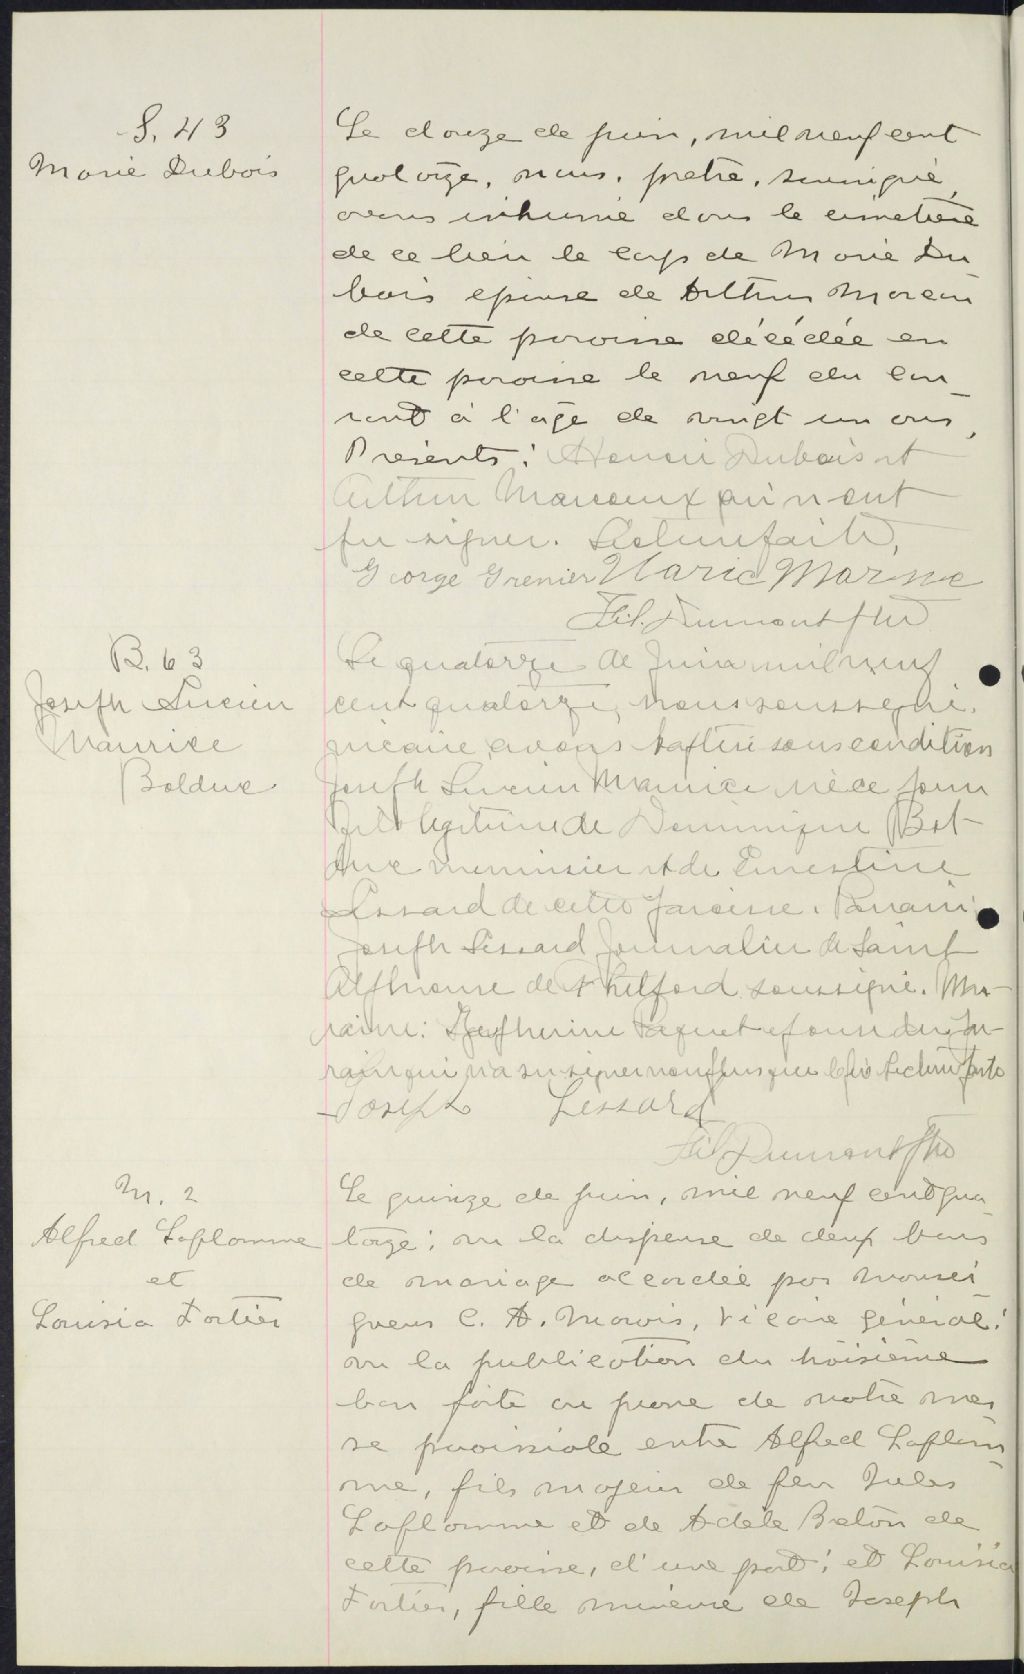 S. 43
Marie Dubois
Le douze de juin, mil neuf cent
quatorze, nous, prêtre, soussigné,
avons inhumé dans le cimetière
de ce lieu le corps de Marie Du
bois épouse de Arthur Moreau
de cette paroisse décédée en
cette paroisse le neuf du cou
rant à l'âge de vingt un ans,
Présents: Honoré Dubois et
Arthur Marceux qui n'ont
su signer. Lecture faite,
George Grenier Marie
Fil. Dumont ptre
B. 63
Joseph Lucien
Maurice
Bolduc
Le quatorze de Juin mil neuf
cent quatorze, nous soussigné
vicaire avons baptisé sous condition
Joseph Lucien Maurice né ce jour
fils légitime de Dominique Bol-
duc menuisier et de Ernestine
Lessard de cette paroisse. Parrain
Joseph Lessard Journalier de Saint
Alphonse de Thetford soussigné. Ma-
raine: Paquet épouse du pa-
rain qui n'a su signer non plus que le père Lecture faite
Joseph Lessard
Fil Dumont ptre
M. 2
Alfred Laflamme
et
Louisia Fortier
Le quinze de juin, mil neuf cent qua
torze; vu la dispense de deux bans
de mariage accordée par Monsei
gneur C. A. Marois, Vicaire général;
vu la publication du troisième
ban faite au prone de notre mes
se paroissiale entre Alfred Laflam
me, fils majeur de feu Jules
Laflamme et de Adèle Breton de
cette paroisse, d'une part; et Louisia
Fortier, fille mineure de Joseph